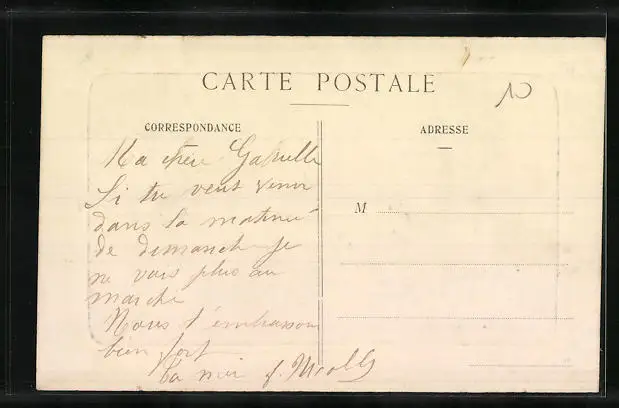 CARTE POSTALE
10
CORRESPONDANCE
ADRESSE
M
Ma chère Gabrielle
Si tu veux venir
dans la matinée
de dimanche je
ne vais plus au
marché
Nous t'embrassons
bien fort
ta mère